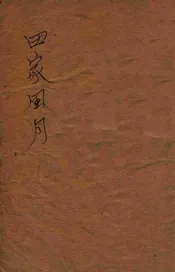 田家風月